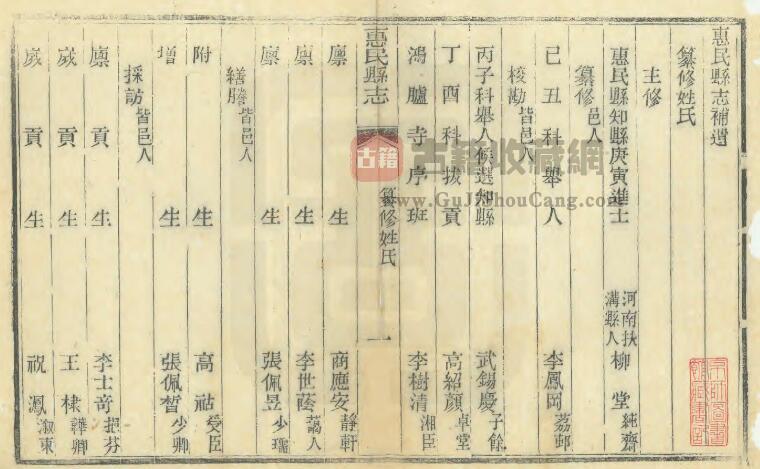 惠民縣志補遺
纂修姓氏
主修
惠民縣知縣庚寅進士 河南扶溝縣人 柳堂 純齋
纂修 邑人
己丑科舉人 李鳳岡 荔邨
校勘 皆邑人
丙子科舉人候選知縣 武錫慶 子餘
丁酉科拔貢 高紹顏 卓堂
鴻臚寺序班 李樹清 湘臣
惠民縣志 纂修姓氏 一
廩生 商應安 靜軒
廩生 李世蔭 藹人
廩生 張佩昱 少瑞
繕謄 皆邑人
附生 高祜 受臣
增生 張佩晳 少卿
採訪 皆邑人
廪貢生 李士奇 挹芬
歲貢生 王棣 韡卿
歲貢生 祝鳳 淑東
古籍收藏網
www.GuJiShouCang.com
古籍